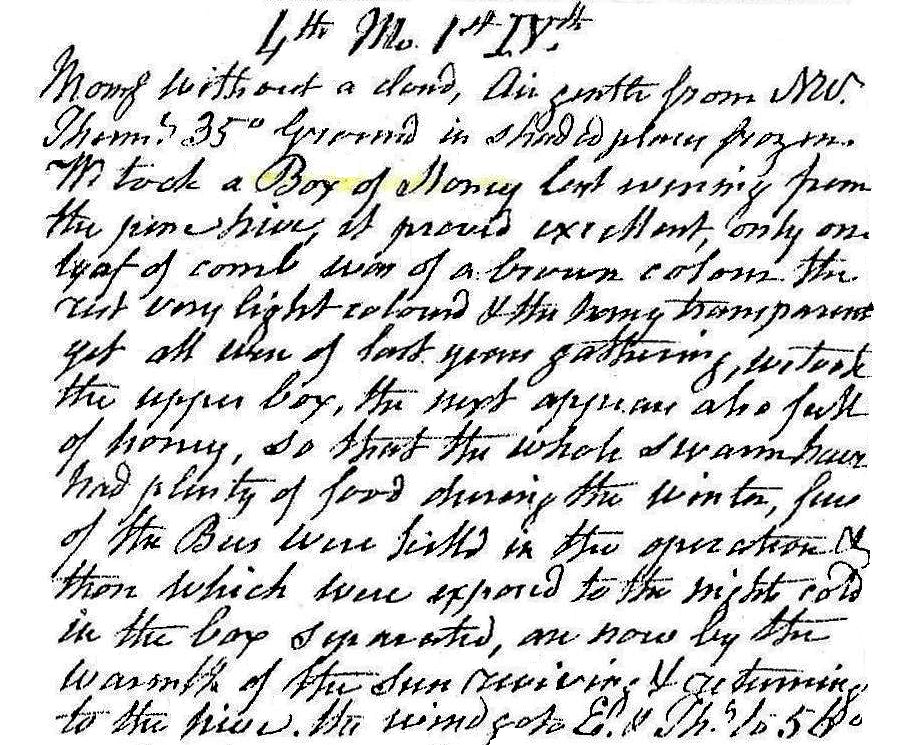 4th Mo. 1st IVth
Morng without a cloud, Air gentle from NW.
Therm.r 35° Ground in shaded places frozen.
We took a Box of Honey last evening from
the pine hive, it proved excellent, only one
leaf of comb was of a brown colour the
rest very light coloured & the honey transparent
yet all were of last years gathering, we took
the upper box, the next appears also full
of honey, so that the whole swarm have
had plenty of food during the winter, few
of the Bees were killed in the operation &
those which were exposed to the night cold
in the box separated, are now by the
warmth of the sun reviving & returning
to the hive. the wind got to Ed. & Thr. to 56°